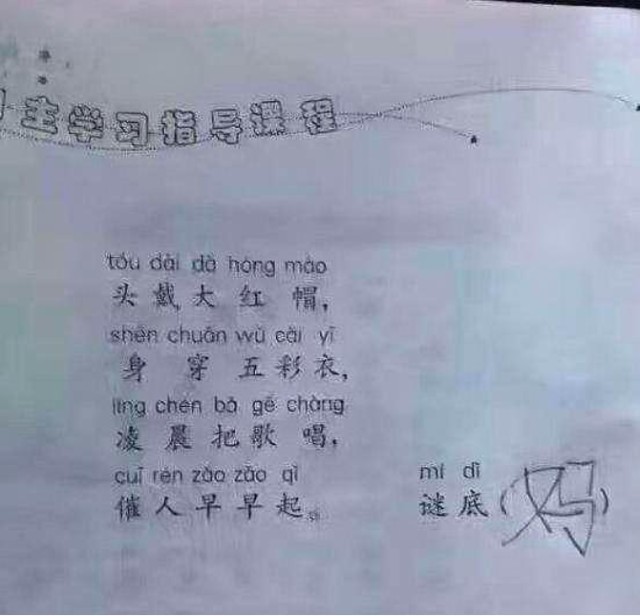 主学习指导课程
tóu dài dà hóng mào
头戴大红帽，
shēn chuān wǔ cǎi yī
身穿五彩衣，
líng chén bǎ gē chàng
凌晨把歌唱，
cuī rén zǎo zǎo qǐ mí dǐ
催人早早起。 谜底（妈）